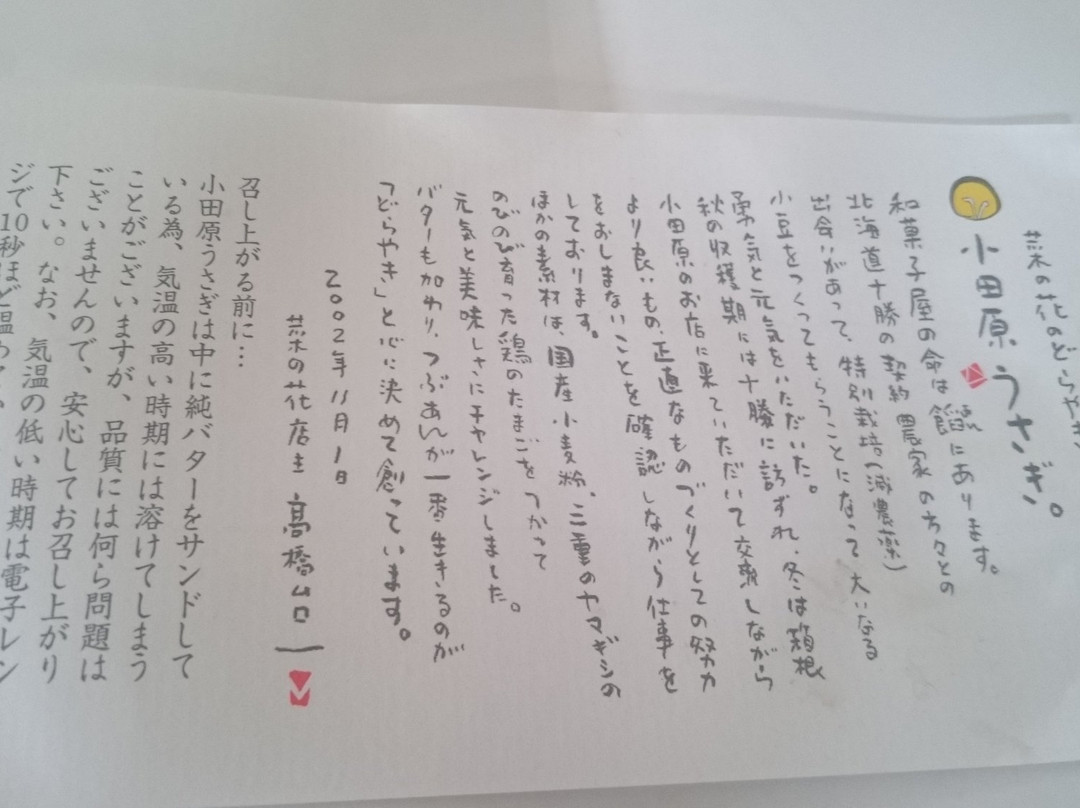 菜の花のどらやき
小田原うさぎ。
和菓子屋の命は餡にあります。
北海道十勝の契約農家の方々との
出会いがあって、特別栽培(減農薬)
小豆をつくってもらうことになって大いなる
勇気と元気をいただいた。
秋の収穫期には十勝に訪ずれ、冬は箱根
小田原のお店に来ていただいて交流しながら
より良いもの、正直なものづくりとしての努力
をおしまないことを確認しながら仕事を
しております。
ほかの素材は、国産小麦粉、三重のヤマギシの
のびのび育った鶏のたまごをつかって
元気と美味しさにチャレンジしました。
バターも加わり、つぶあんが一番生きるのが
「どらやき」と心に決めて創っています。
2002年11月1日
菜の花店主 高橋台一
召し上がる前に…
小田原うさぎは中に純バターをサンドして
いる為、気温の高い時期には溶けてしまう
ことがございますが、品質には何ら問題は
ございませんので、安心してお召し上がり
下さい。なお、気温の低い時期は電子レン
ジで10秒ほど温